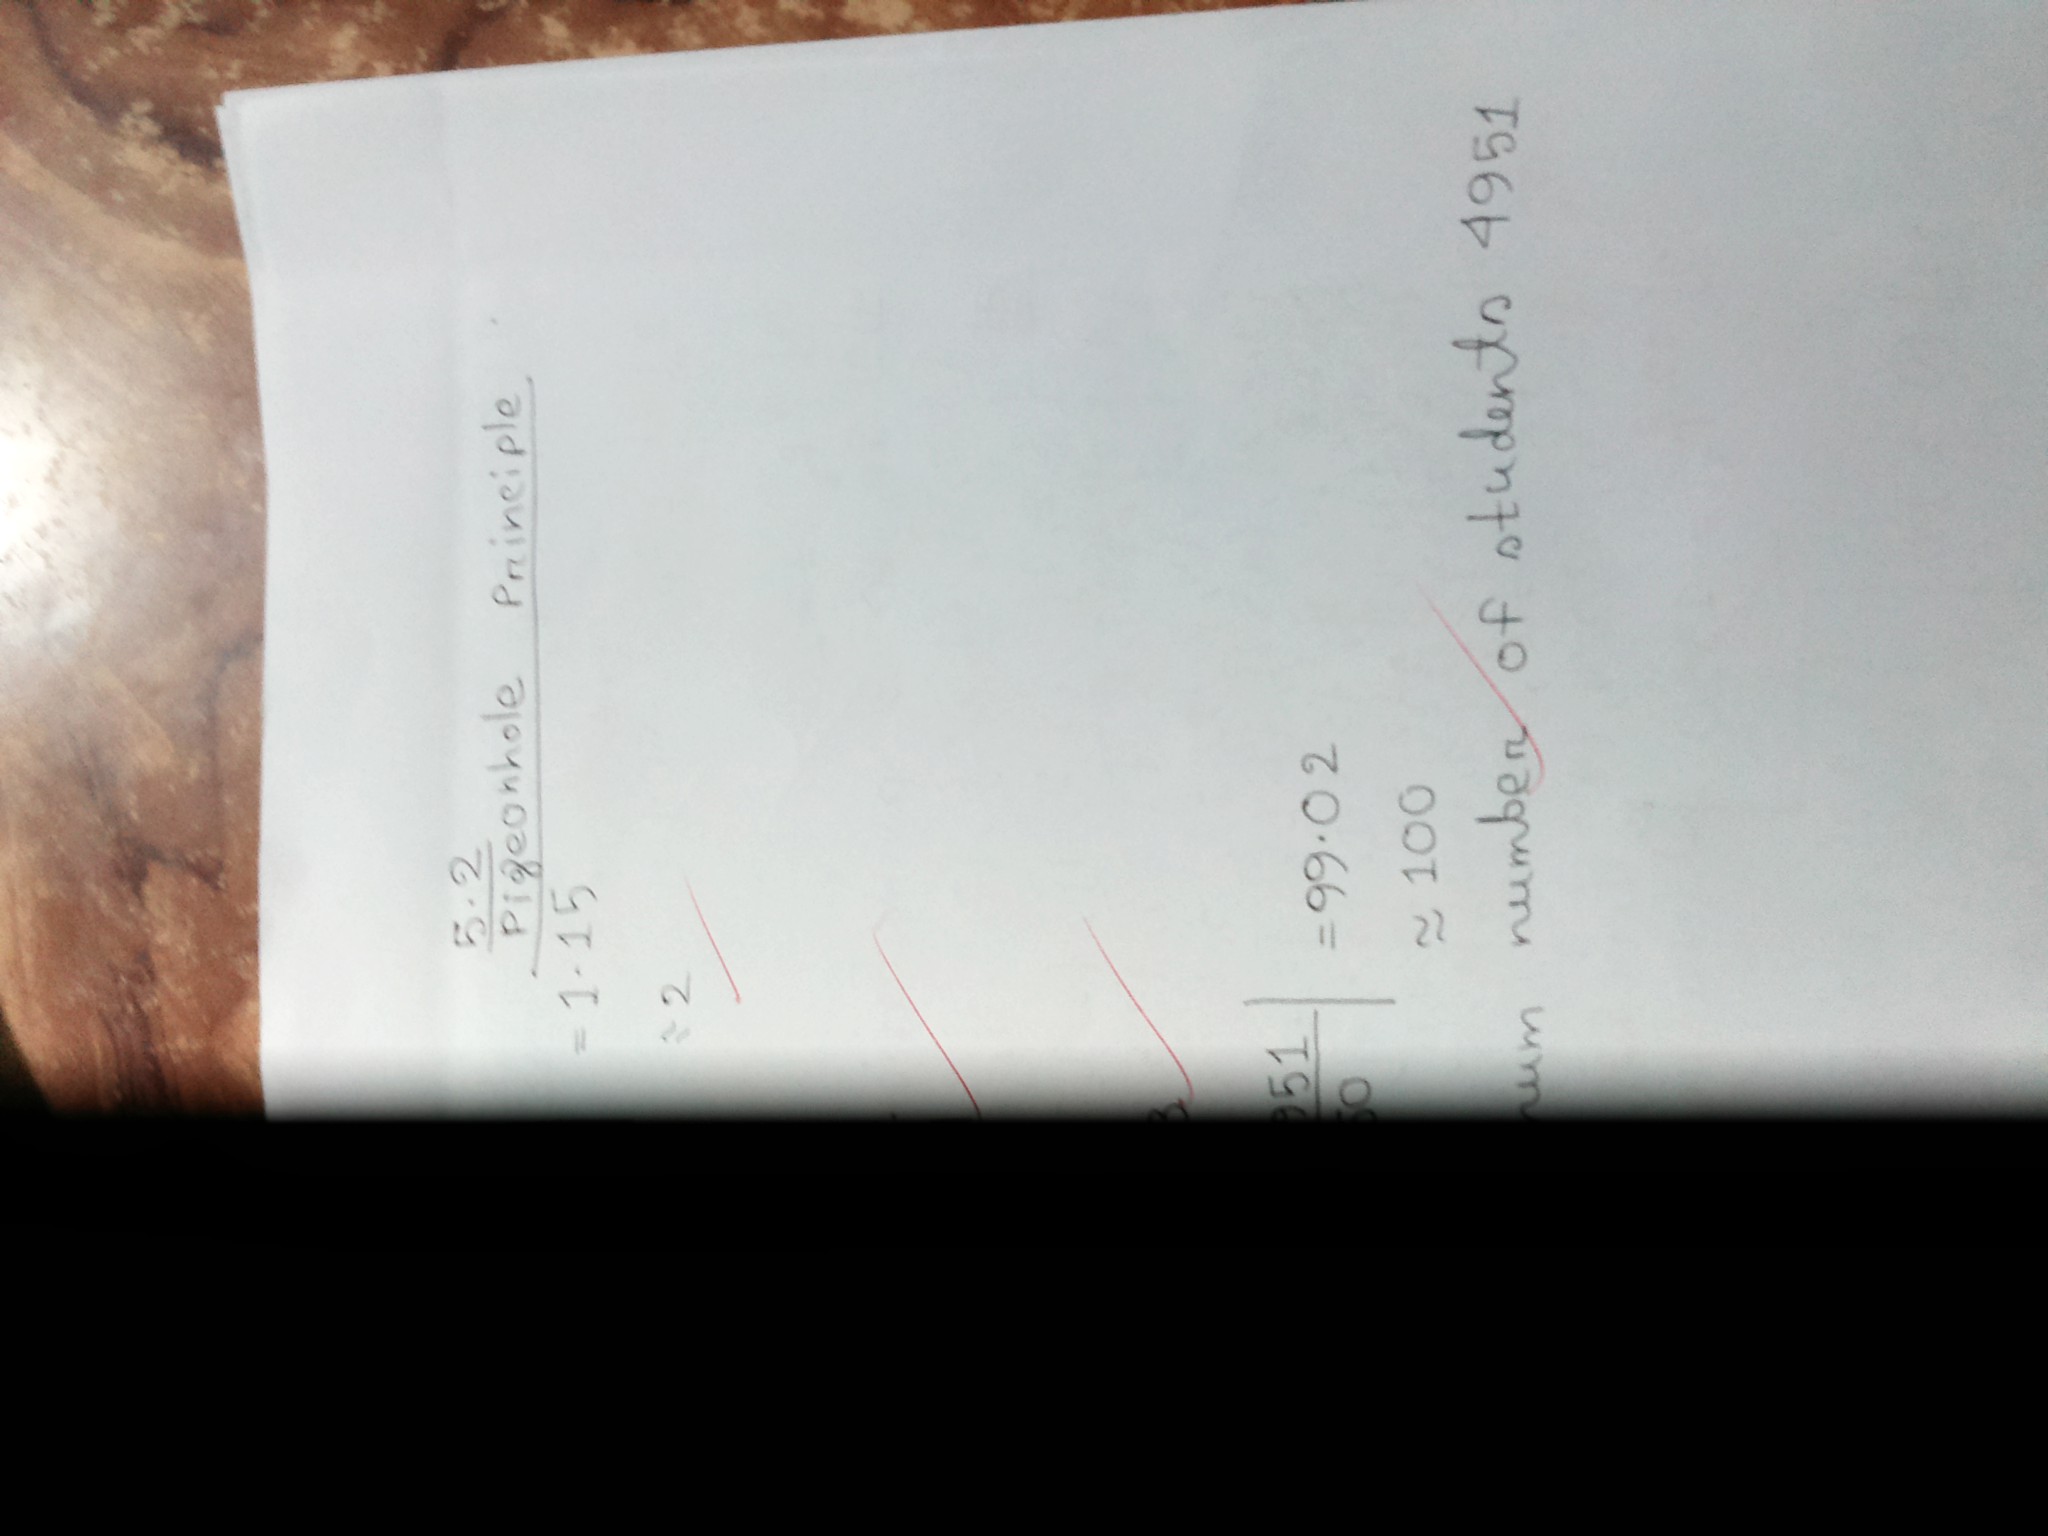 5.2
Pigeonhole Principle
= 1.15
≈ 2
951 = 99.02
50
≈ 100
number of students 4951